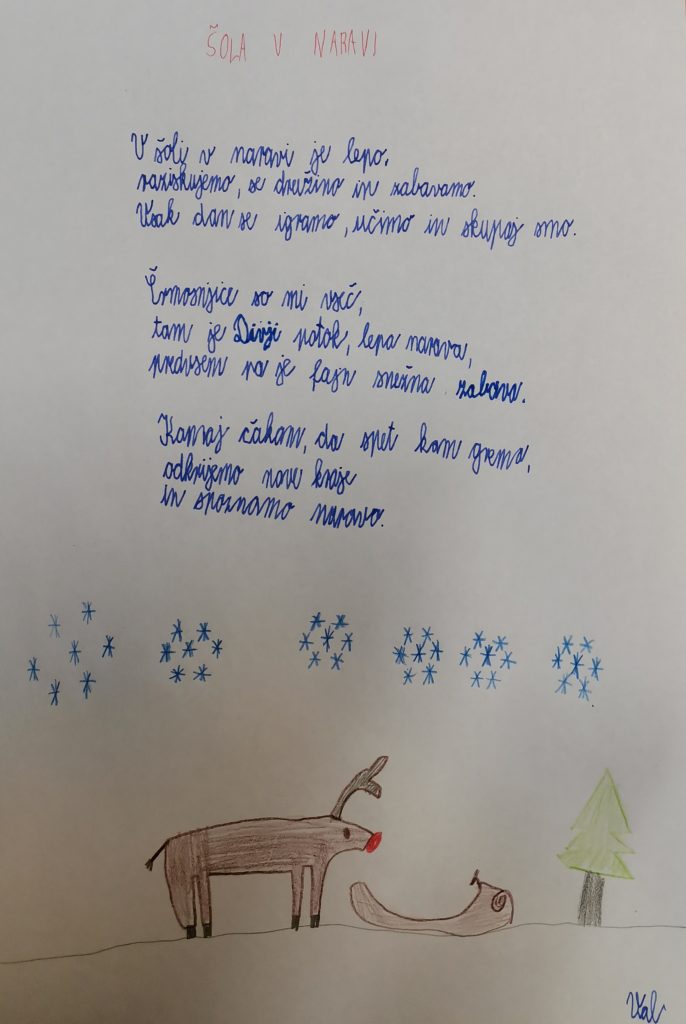 ŠOLA V NARAVI
V šoli v naravi je lepo,
raziskujemo, se družimo in zabavamo.
Vsak dan se igramo, učimo in skupaj smo.
Črmošnjice so mi všeč,
tam je Divji potok, lepa narava,
predvsem pa je fajn snežna zabava.
Komaj čakam, da spet kam grema,
odkrijemo nove kraje
in spoznamo naravo.
Val